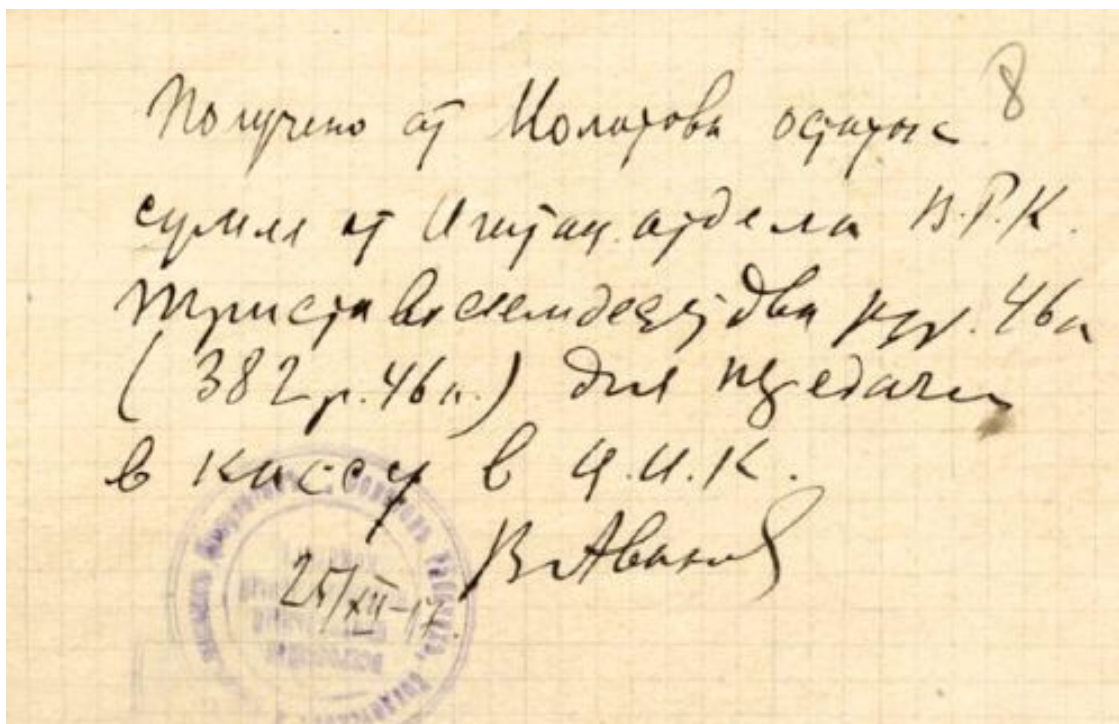 8
Получено от Молотова остаток
сумм от Агитац. отдела В.Р.К.
триста восемьдесят два руб. 46 к
( 382 р. 46 к. ) для передачи
в кассу в Ц.И.К.
В Аванесов
25/XII-17.